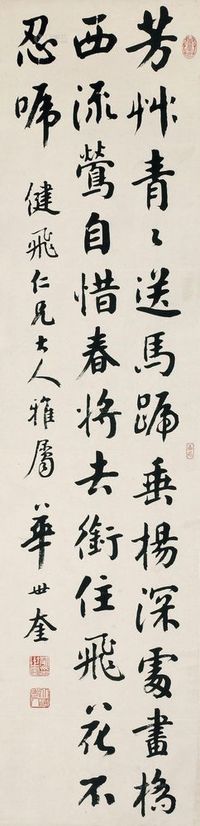 芳艸青〻送馬蹄垂楊深處畫橋
西流鶯自惜春將去銜住飛花不
忍啼
健飛仁兄大人雅屬
華世奎